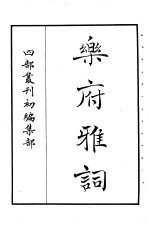 樂府雅詞
四部叢刊初編集部